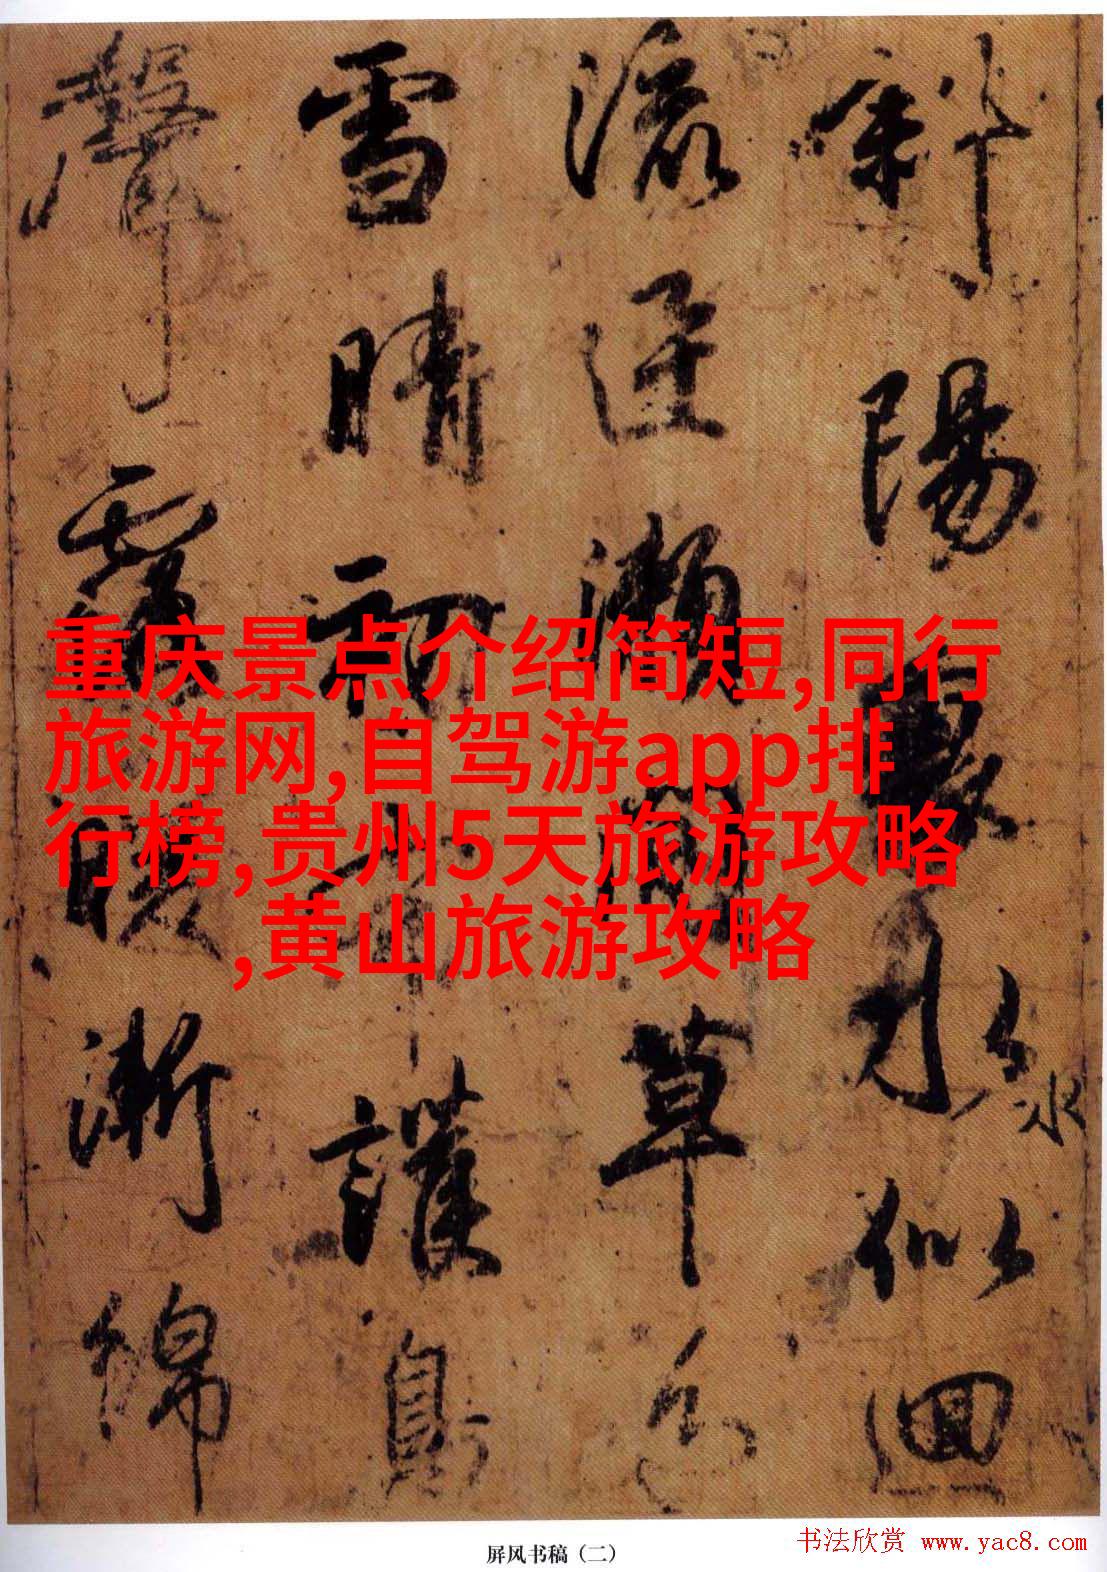 斜陽裏水似迴
水
流迅瀬間草色
雪晴初布護鳥
聲露暖漸綿
重庆景点介绍简短,同行
旅游网,自驾游app排
行榜,贵州5天旅游攻略
,黄山旅游攻略
屏风书稿（二）
书法欣赏 www.yac8.com